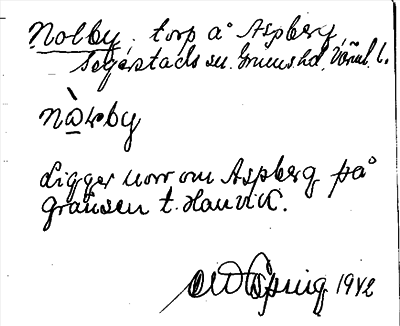 Nolby, torp å Aspberg,
Segerstads sn. Grums hd, Värml. l.
nàɷby
Ligger norr om Aspberg på
gränsen t. Hanvik.
1942